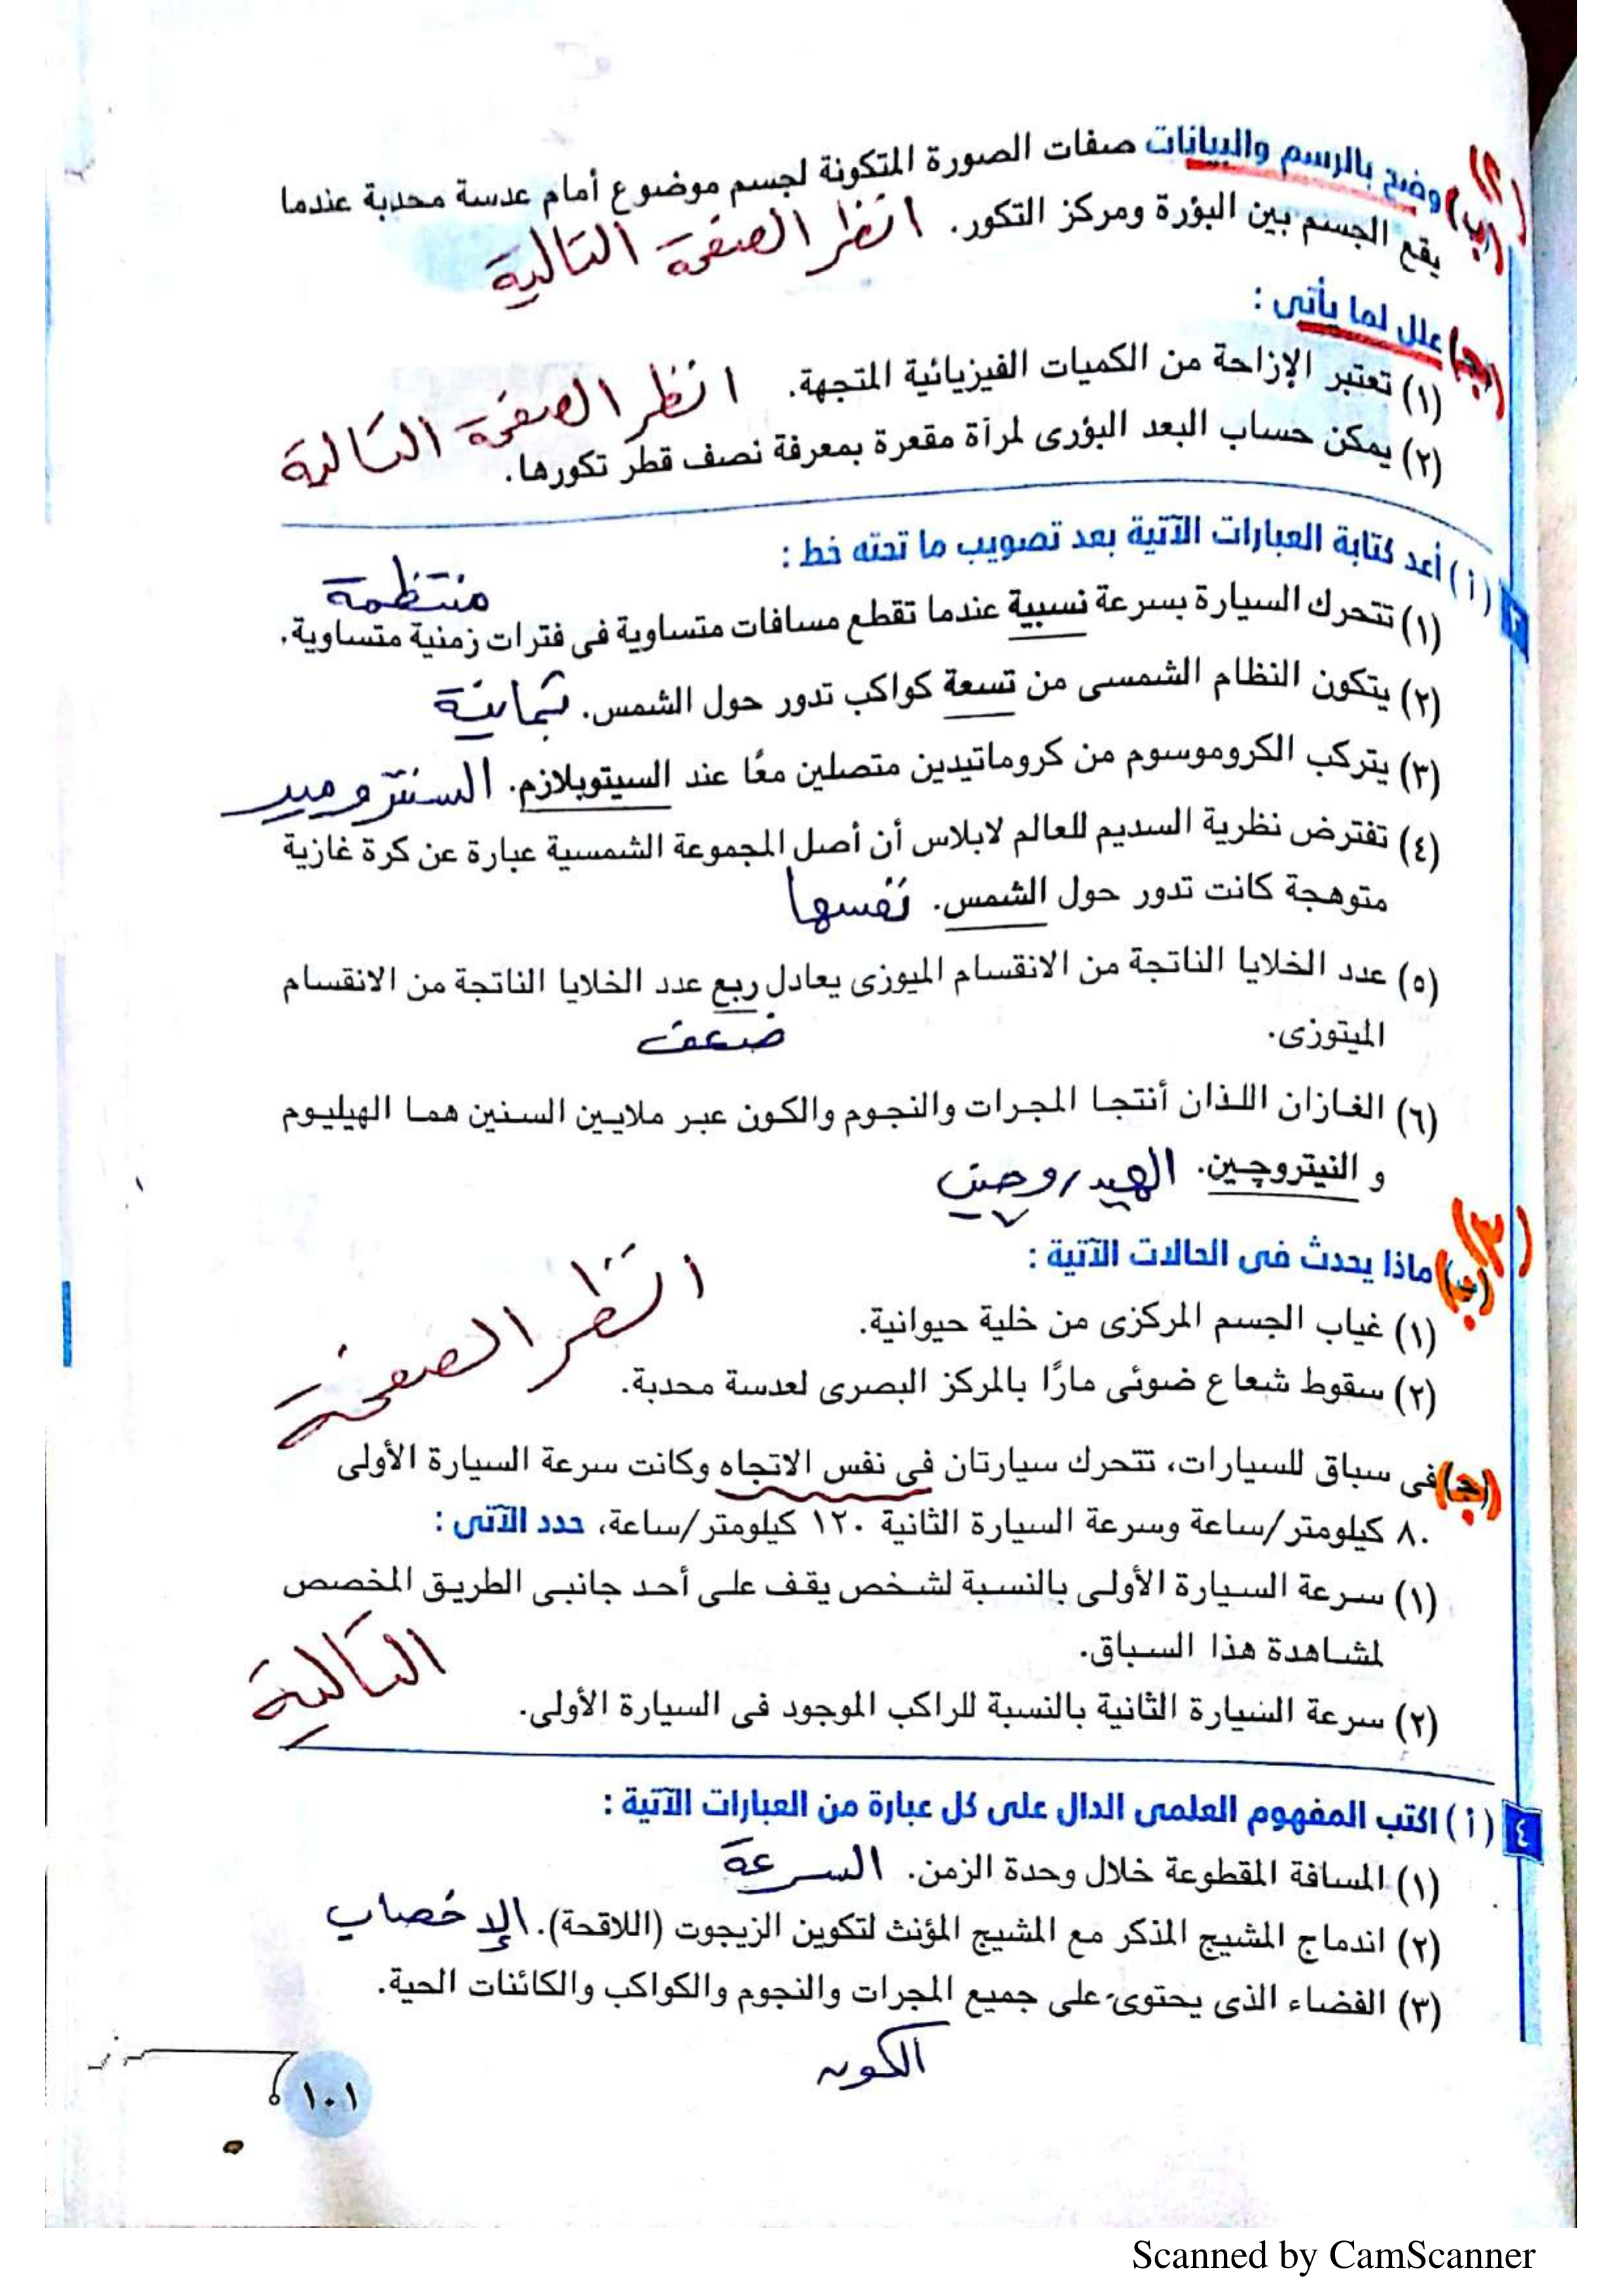 ٢)
(ب) وضح بالرسم والبيانات صفات الصورة المتكونة لجسم موضوع أمام عدسة محدبة عندما
يقع الجسم بين البؤرة ومركز التكور. انظر الصفحة التالية
(جـ) علل لما يأتى :
(١) تعتبر الإزاحة من الكميات الفيزيائية المتجهة. انظر الصفحة التالية
(٢) يمكن حساب البعد البؤرى لمرآة مقعرة بمعرفة نصف قطر تكورها.
٣ (أ) أعد كتابة العبارات الآتية بعد تصويب ما تحته خط :
منتظمة
(١) تتحرك السيارة بسرعة نسبية عندما تقطع مسافات متساوية فى فترات زمنية متساوية.
(٢) يتكون النظام الشمسى من تسعة كواكب تدور حول الشمس. ثمانية
(٣) يتركب الكروموسوم من كروماتيدين متصلين معًا عند السيتوبلازم. السنترومير
(٤) تفترض نظرية السديم للعالم لابلاس أن أصل المجموعة الشمسية عبارة عن كرة غازية
متوهجة كانت تدور حول الشمس. نفسها
(٥) عدد الخلايا الناتجة من الانقسام الميوزى يعادل ربع عدد الخلايا الناتجة من الانقسام
الميتوزى.
ضعف
(٦) الغازان اللذان أنتجا المجرات والنجوم والكون عبر ملايين السنين هما الهيليوم
و النيتروچين. الهيدروجين
٣)
(ب) ماذا يحدث فى الحالات الآتية :
(١) غياب الجسم المركزى من خلية حيوانية. انظر الصفحة
(٢) سقوط شعاع ضوئى مارًا بالمركز البصرى لعدسة محدبة.
(جـ) فى سباق للسيارات، تتحرك سيارتان فى نفس الاتجاه وكانت سرعة السيارة الأولى
٨٠ كيلومتر/ساعة وسرعة السيارة الثانية ١٢٠ كيلومتر/ساعة، حدد الآتى :
(١) سرعة السيارة الأولى بالنسبة لشخص يقف على أحد جانبى الطريق المخصص
لمشاهدة هذا السباق.
التالية
(٢) سرعة السيارة الثانية بالنسبة للراكب الموجود فى السيارة الأولى.
٤ (أ) اكتب المفهوم العلمى الدال على كل عبارة من العبارات الآتية :
(١) المسافة المقطوعة خلال وحدة الزمن. السرعة
(٢) اندماج المشيج المذكر مع المشيج المؤنث لتكوين الزيجوت (اللاقحة). الإخصاب
(٣) الفضاء الذى يحتوى على جميع المجرات والنجوم والكواكب والكائنات الحية.
الكون
١٠١
Scanned by CamScanner